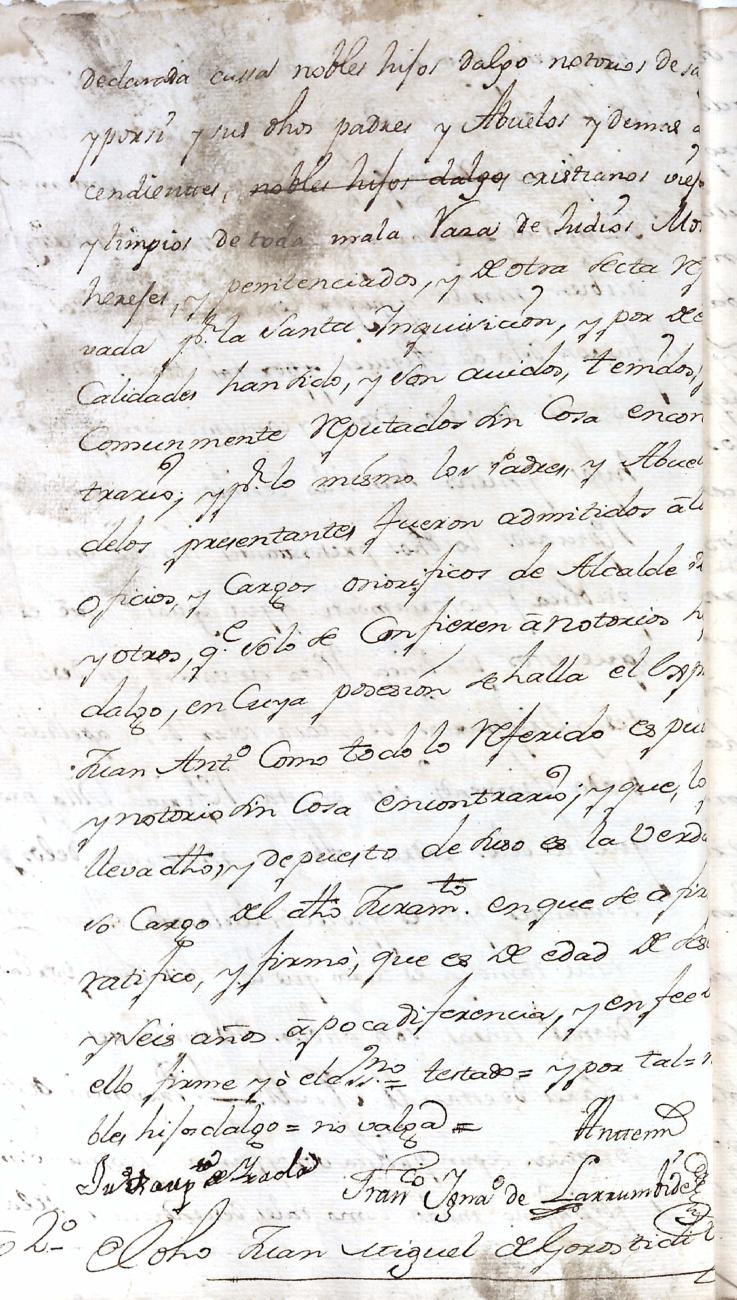 declarada cassa nobles hifos dalgo notorios de sa
y por si y sus dhos padres y Abuelos y demas a
cendientes, nobles hifos dalgos cristianos viej
y limpios de toda mala Raza de Judios Mo
herefes, y penitenciados, y de otra secta re
vada pr. la Santa Inquisicion, y por de
Calidades han sido, y son auidos, tenidos,
Comunmente reputados sin Cosa encon
trario; y pr. lo mismo los Padres, y Abue
delos presentantes fueron admitidos ã lo
oficios, y Cargos onorificos de Alcalde
y otros, q.e solo se Confieren ã notorios h
dalgo, en Cuya posesion se halla el Exp
Juan Ant.o Como todo lo referido es pu
y notorio sin Cosa encontrario; y que, lo
lleva dho, y depuesto de suso es la Verda
so Cargo del dho Juram.to en que se afir
ratifico, y firmò, que es de edad de
y seis años ã poca diferencia, y en fee d
ello firme yò el ss.no = testado = y por tal = n
bles hifosdalgo = no valga =
Antemi
Ju Baup.ta de Irola
Fran.co Igna.o de Larrumbide
2.o El dho Juan Miguel de Gorostidi